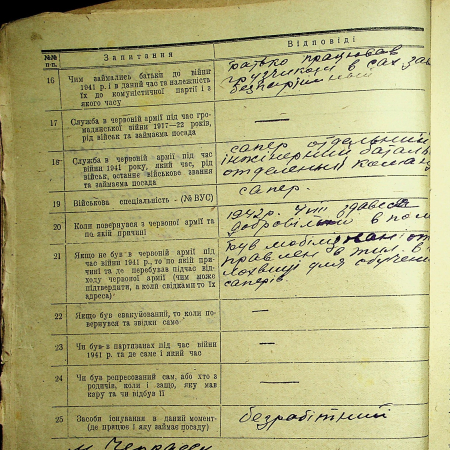 №№ п-п.
Запитання
Відповіді
16
Чим займались батьки до війни
1941 р. і в даний час та належність
їх до комуністичної партії і з
якого часу
батько працював
грузчиком в сах. зав
безпартійний
17
Служба в червоній армії під час гро-
мадянської війни 1917—22 років,
рід військ та займаєма посада
—
18
Служба в червоній армії під час
війни 1941 року, який час, рід
військ, останнє військове звання
та займаєма посада
сапер отдельний
інженерний батальй
отделения команд
19
Військова спеціальність - (№ ВУС)
сапер.
20
Коли повернувся з червоної армії та
по якій причині
1942 р.
добровільно в пол
21
Якщо не був в червоній армії під
час війни 1941 р., то по якій при-
чині та де перебував підчас від-
ходу червоної армії (чим може
підтвердити, а коли свідками то їх
адреса)
був мобілізований от
правлен в тил. в
для обучения
саперів.
22
Якщо був евакуйований, то коли по-
вернувся та звідки само
—
23
Чи був в партизанах під час війни
1941 р. та де саме і який час
—
24
Чи був репресований сам, або хто з
родичів, коли і защо, яку мав
кару та чи відбув її
—
25
Засоби існування в даний момент
(де працює і яку займає посаду)
безработний
м. Черкасси